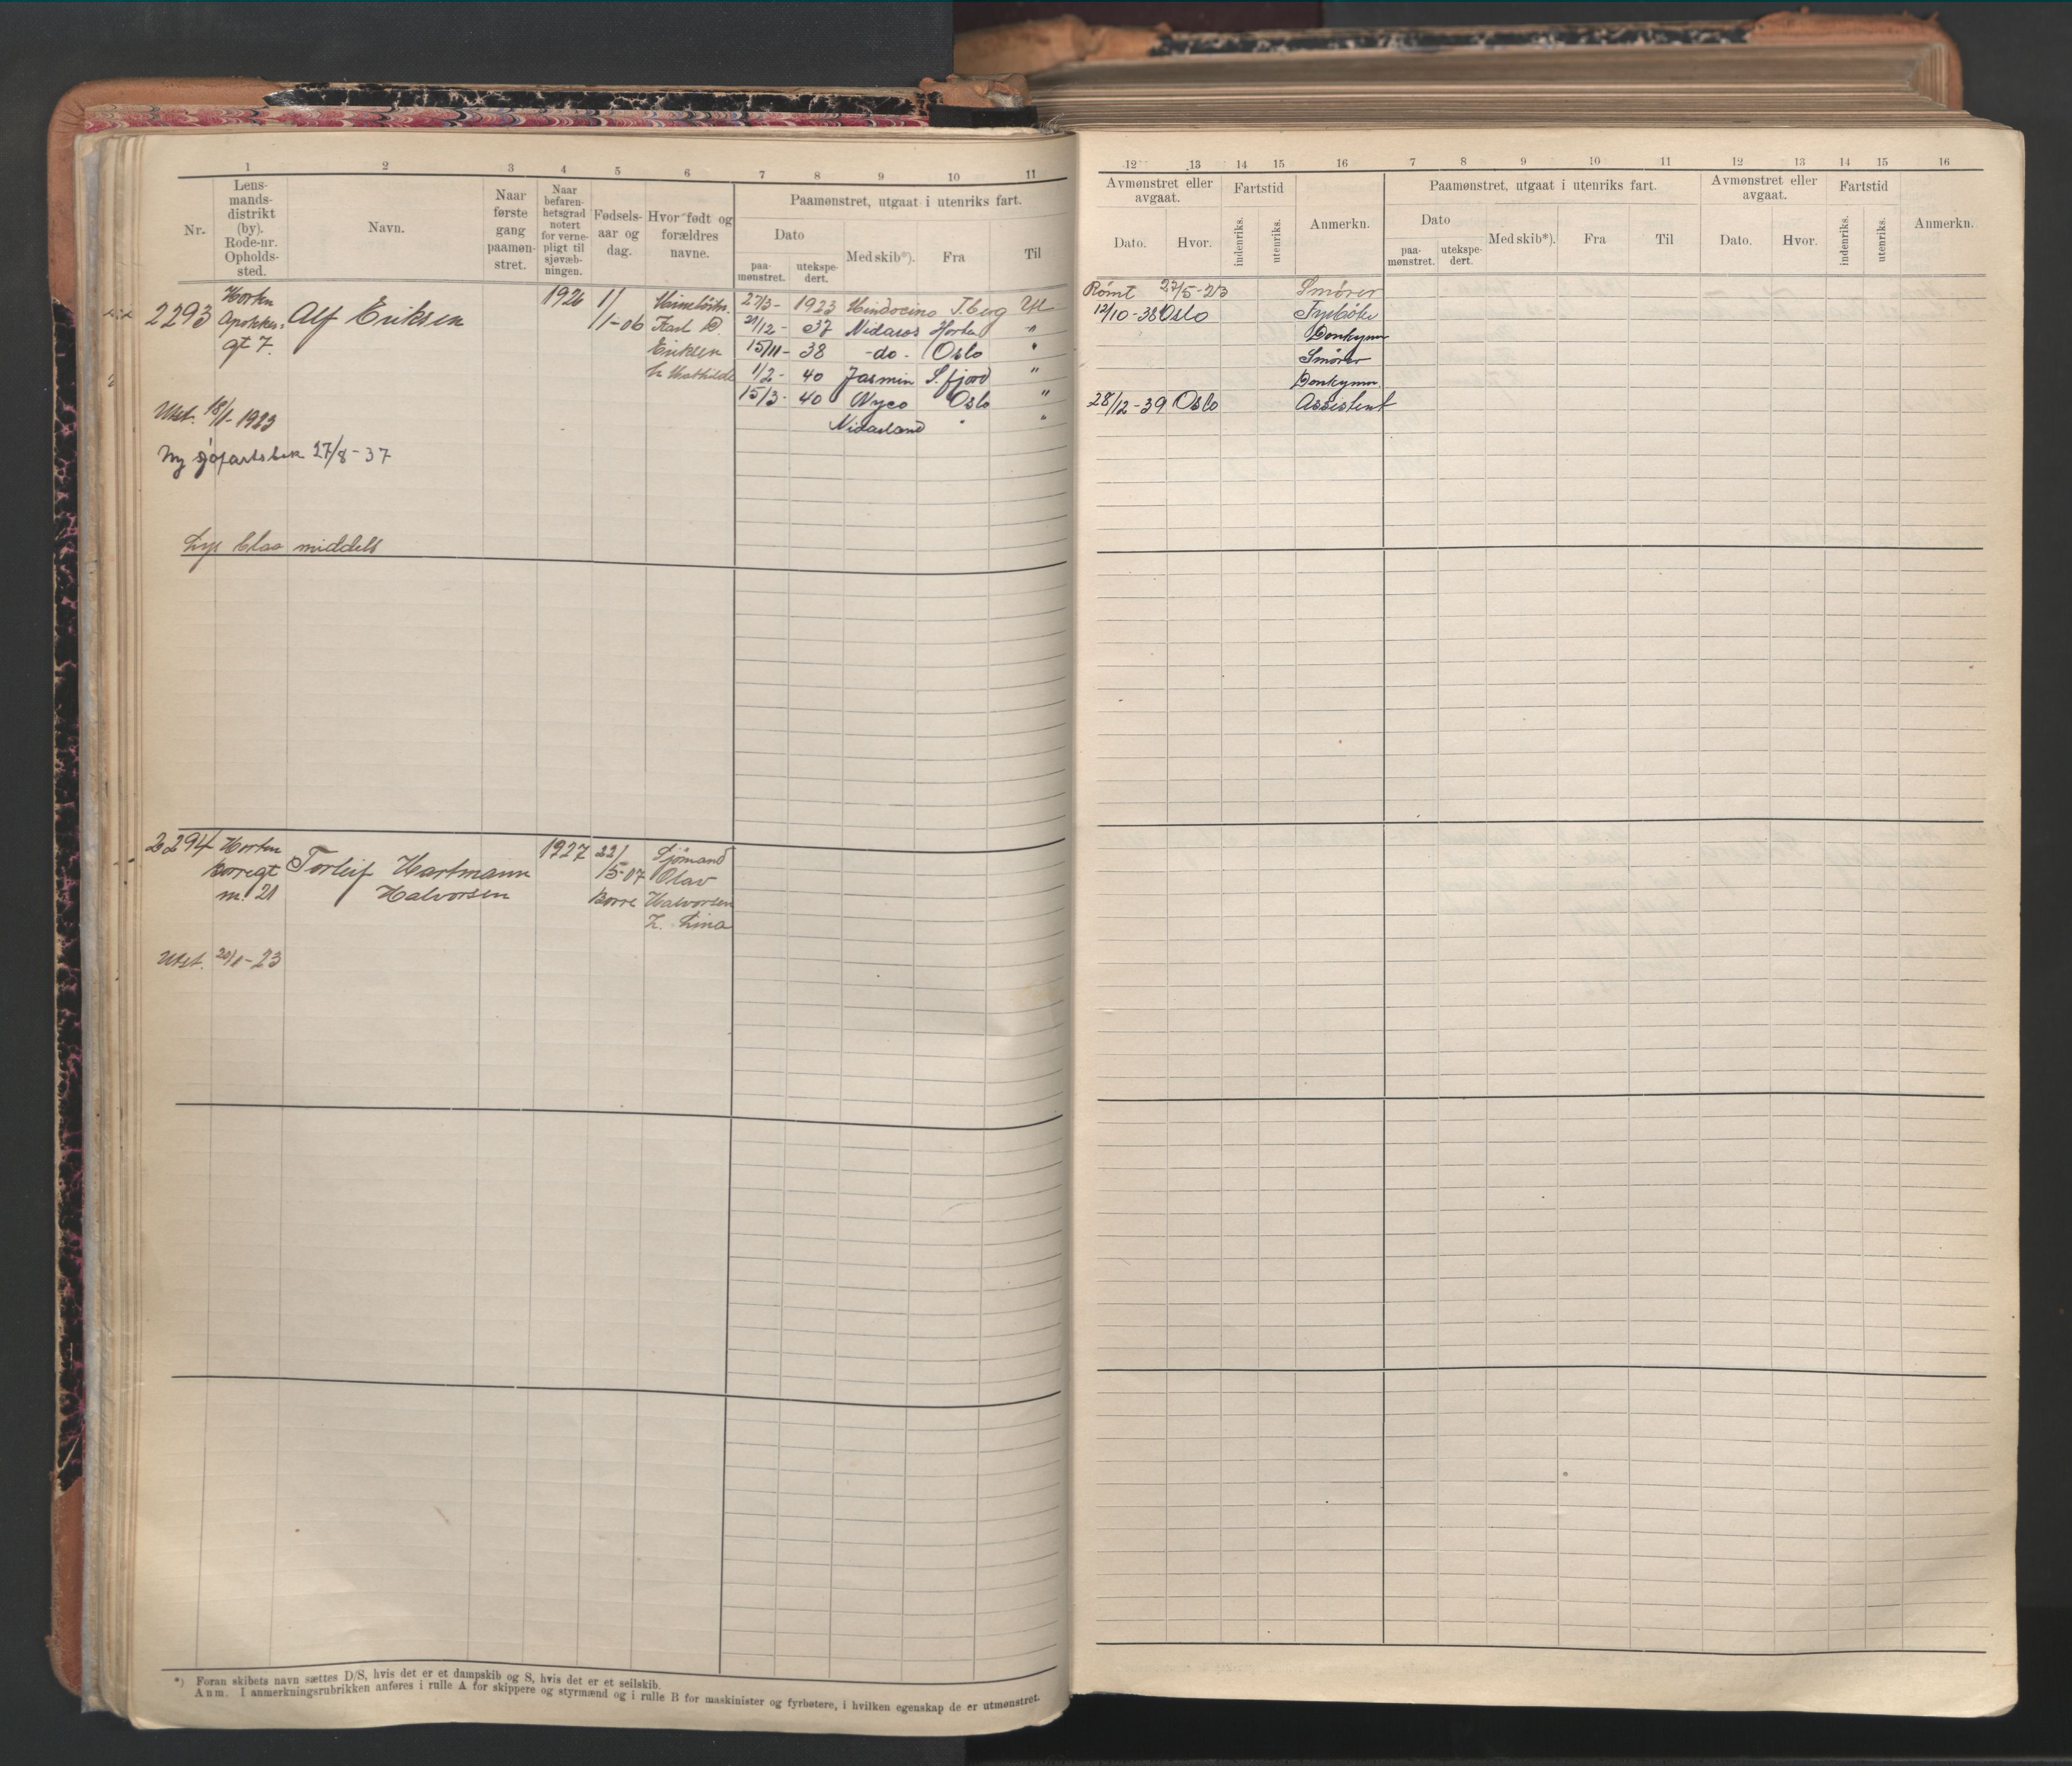 1 2 3 4 5 6 7 8 9 10 11
Nr.
Lens-
mands-
distrikt
(by).
Rode-nr.
Opholds-
sted.
Navn.
Naar
første
gang
paamøn-
stret.
Naar
befaren-
hetsgrad
notert
for verne-
pligt til
sjøvæb-
ningen.
Fødsels-
aar og
dag.
Hvor født og
forældres
navne.
Paamønstret, utgaat i utenriks fart.
Dato
paa-
mønstret.
utekspe-
dert.
Med skib*).
Fra
Til
2293 Horten Alf Eriksen 1926 1/1-06
gt 7.
Karl
Eriksen
27/3- 1923 Mindocino T.berg Utl
21/12- 37 Nidaros Horten "
15/11- 38 -do- Oslo "
1/2- 40 Jasmin S.fjord "
15/3- 40 Nyco Oslo "
Nidarland " "
Utst. 18/1-1923
Ny sjøfartsbok 27/8-37
Lys blaa middels
2294 Horten Torleif Hartmann 1927 22/5-07 Sjømand
Borregt Halvorsen Borre Olav
nr. 21 Halvorsen
Lina
Utst. 20/1-23
*) Foran skibets navn sættes D/S, hvis det er et dampskib og S, hvis det er et seilskib.
Anm. I anmerkningsrubrikken anføres i rulle A for skippere og styrmænd og i rulle B for maskinister og fyrbøtere, i hvilken egenskap de er utmønstret.
12 13 14 15 16 7 8 9 10 11 12 13 14 15 16
Avmønstret eller
avgaat.
Dato. Hvor.
Fartstid
indenriks.
utenriks.
Anmerkn.
Paamønstret, utgaat i utenriks fart.
Dato
paa-
mønstret.
utekspe-
dert.
Med skib*).
Fra
Til
Avmønstret eller
avgaat.
Dato. Hvor.
Fartstid
indenriks.
utenriks.
Anmerkn.
Rømt 27/5-23 Smører
12/10-38 Oslo Fyrbøter
Donkymn
Smører
Donkymn
28/12-39 Oslo Assistent